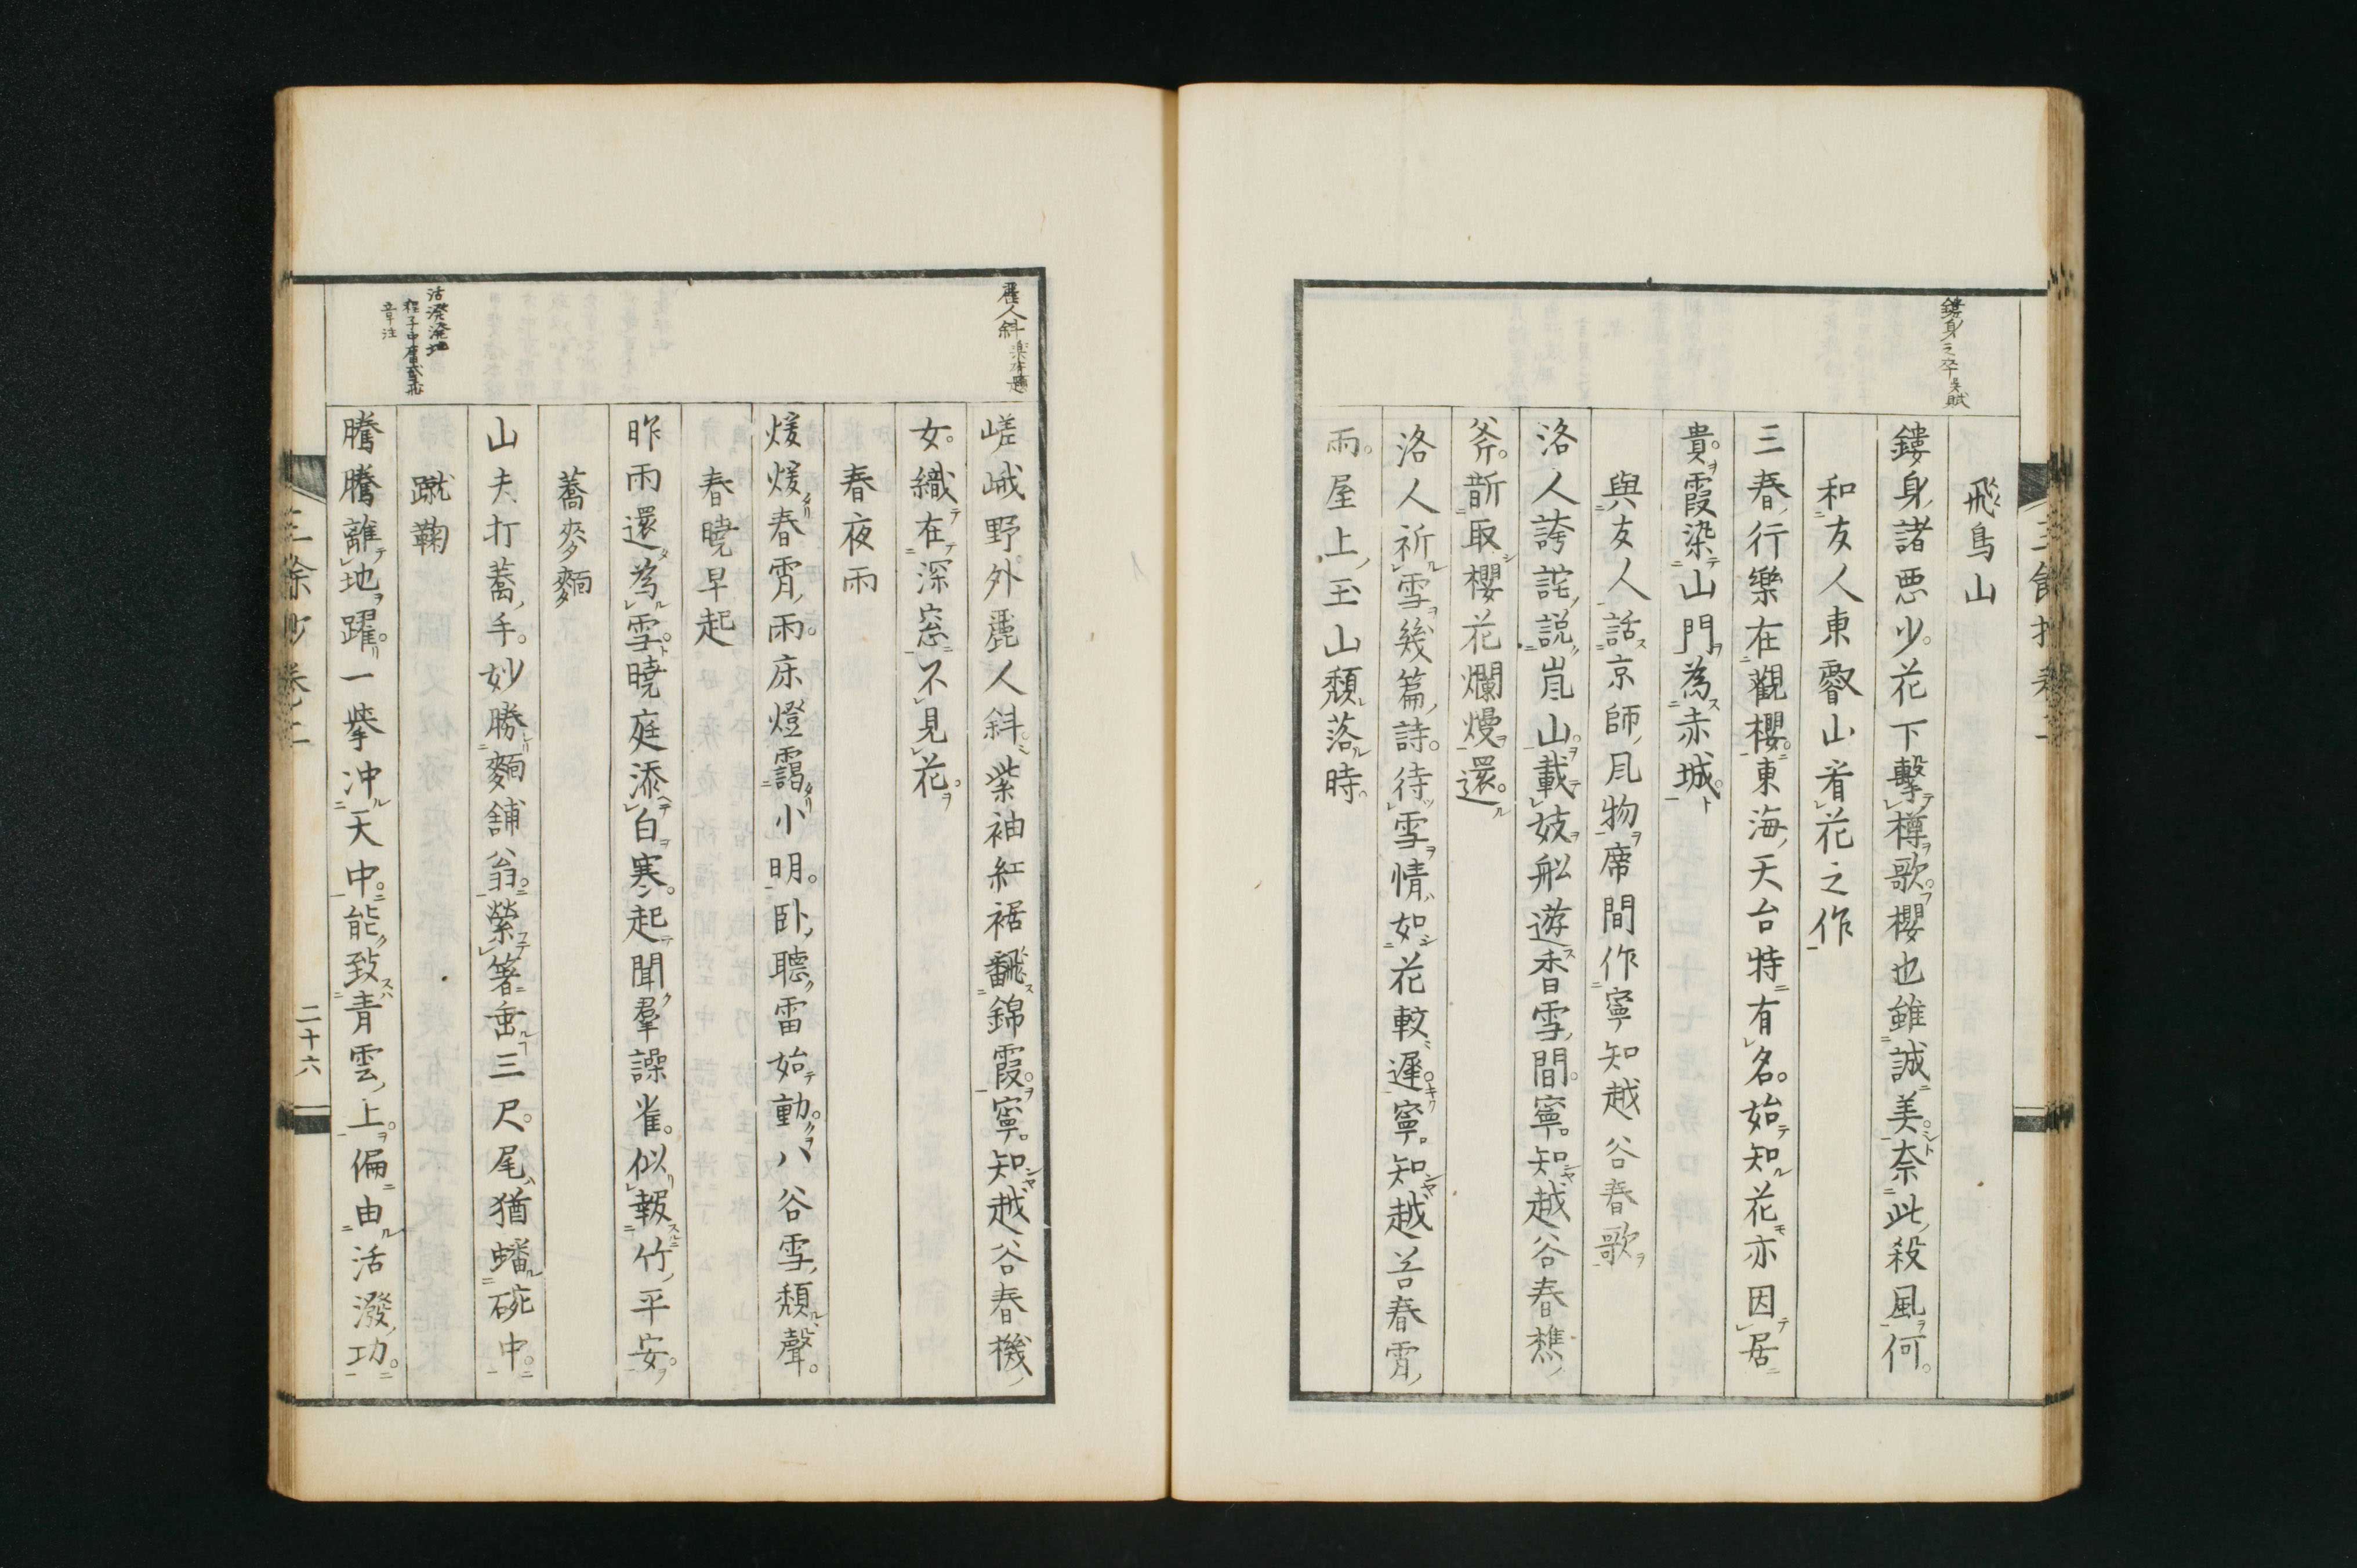 鏤身之卒 吳賦
飛鳥山
鏤身諸悪少。花下擊樽歌。櫻也雖誠美。奈此殺風何。
和友人東叡山看花之作
三春行樂在觀櫻。東海天台特有名。始知花亦因居
貴。霞染山門為赤城。
與友人話京師凬物席間作寧知越谷春歌
洛人誇詫說嵐山。載妓舩遊香雪間。寧知越谷春樵
斧。斮取櫻花爛熳還。
洛人祈雪幾篇詩。待雪情如花較遲。寧知越谷春霄
雨。屋上玉山頽落時。
麗人斜 楽府題
嵯峨野外麗人斜。紫袖紅裾飜錦霞。寧知越谷春機
女。織在深窓不見花。
春夜雨
煖煖春霄雨。床燈靄小明。卧聽雷始動。八谷雪頽聲。
春曉早起
昨雨還為雪。曉庭添白寒。起聞羣譟雀。似報竹平安。
蕎麥麵
山夫打蕎手。妙勝麵舖翁。縈箸垂三尺。尾猶蟠碗中。
活潑潑地
程子中庸鳶飛
章注
蹴鞠
騰騰離地躍。一擧冲天中。能致青雲上。偏由活潑功。
三餘抄卷二
二十六